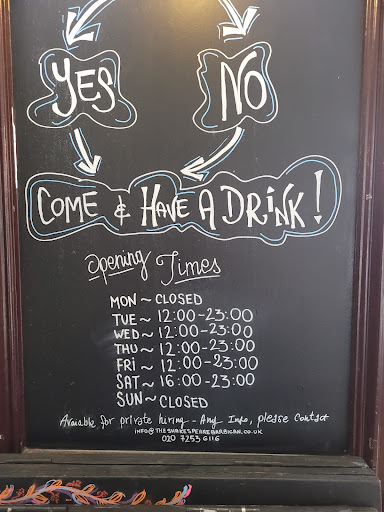 YES NO
COME & HAVE A DRINK!
Opening Times
MON ~ CLOSED
TUE ~ 12:00-23:00
WED ~ 12:00-23:00
THU ~ 12:00-23:00
FRI ~ 12:00-23:00
SAT ~ 16:00-23:00
SUN ~ CLOSED
Avaiable for private hiring - Any Info, please Contact
INFO@THESHAKESPEAREBARBICAN.CO.UK
020 7253 6116